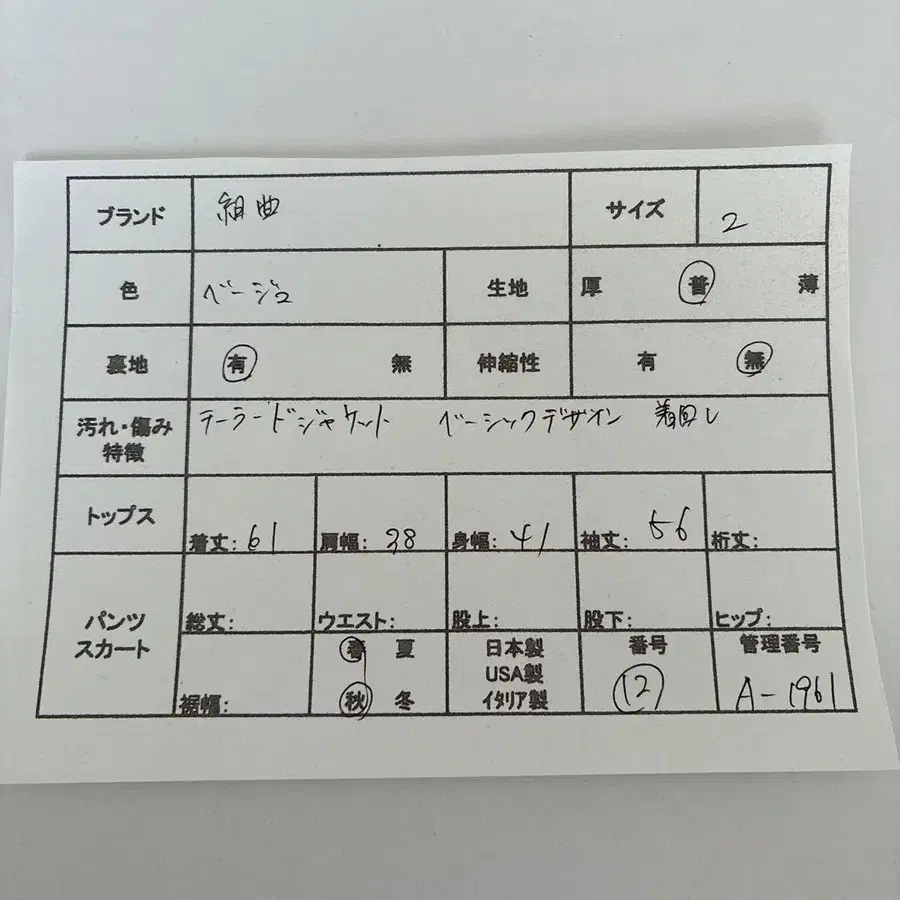 ブランド 組曲 サイズ 2
色 ベージュ 生地 厚 普 薄
裏地 有 無 伸縮性 有 無
汚れ・傷み テーラードジャケット ベーシックデザイン 着回し
特徴
トップス 着丈: 61 肩幅: 38 身幅: 41 袖丈: 56 裄丈:
パンツ 総丈: ウエスト: 股上: 股下: ヒップ:
スカート 裾幅: 春 夏 日本製 番号 管理番号
USA製
秋 冬 イタリア製 12 A-1961